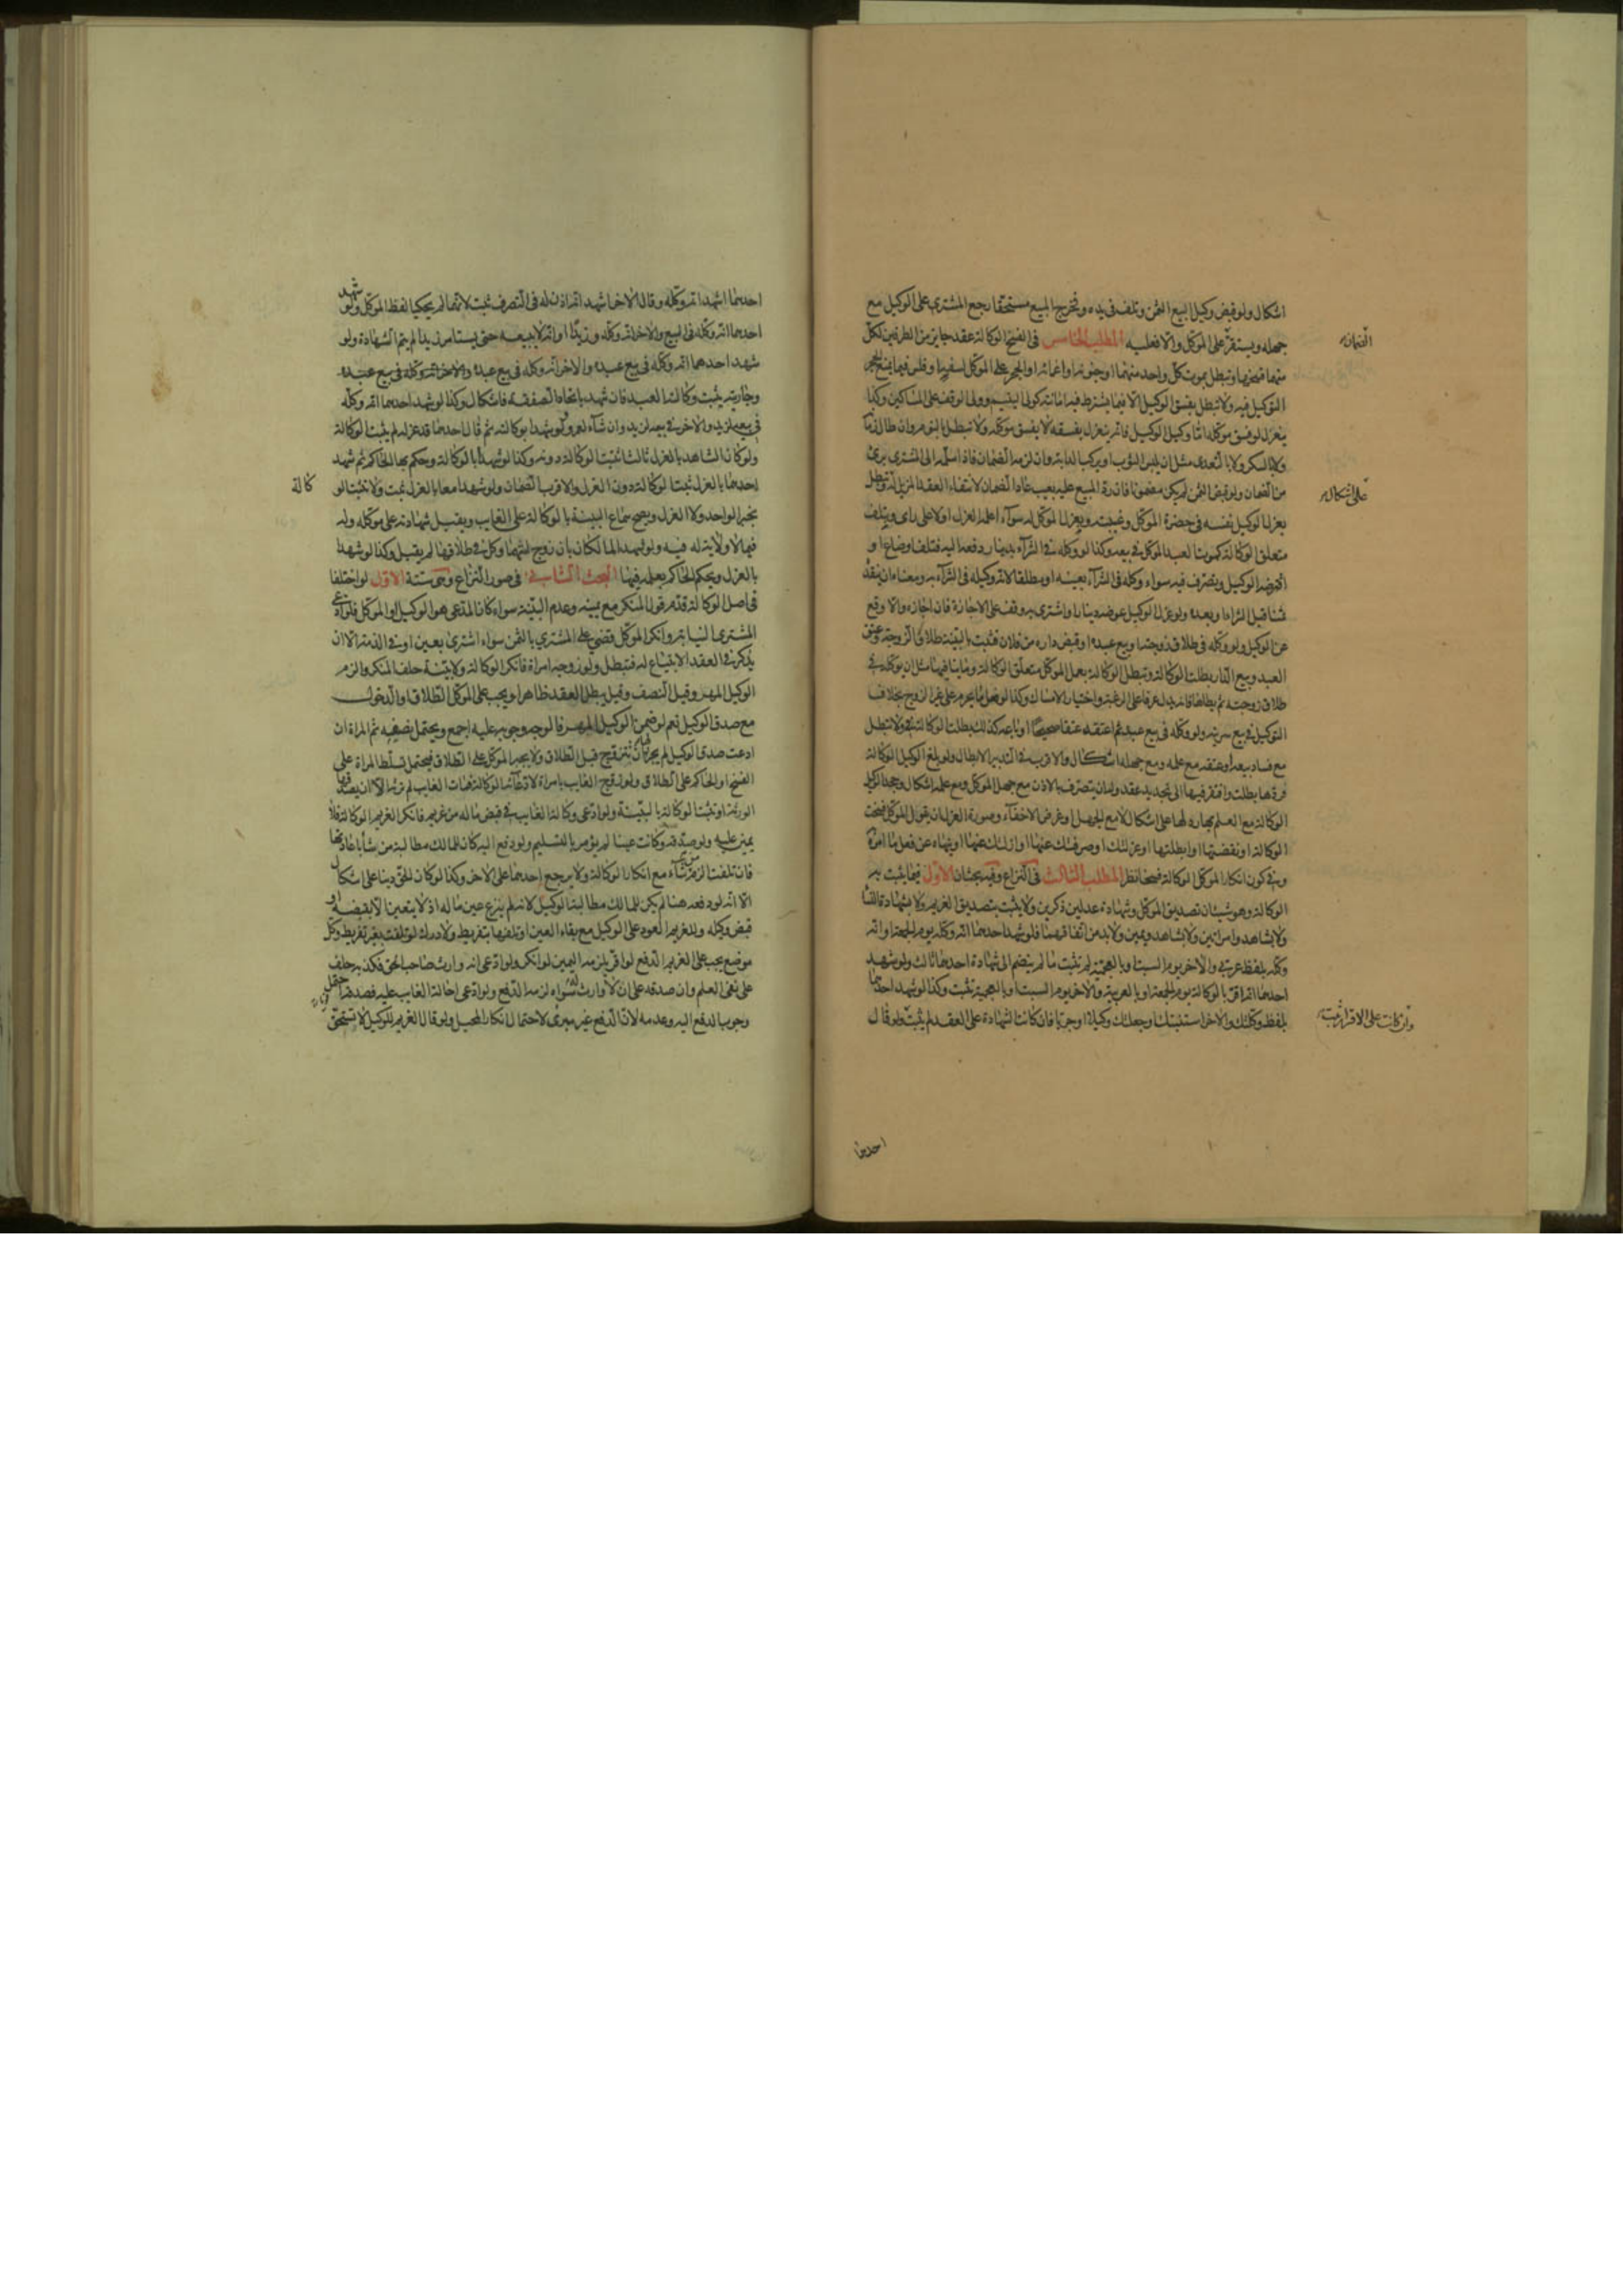 اشكال ولو قبض وكيل البيع الثمن وتلف في يده وخرج المبيع مستحقا رجع المشتري على الوكيل مع
جهله ويستقر على الموكل والا فعليه المطلب الخامس في الفسخ الوكالة عقد جايز من الطرفين لكل
منهما فسخها وتبطل بموت كل واحد منهما او جنونه او اغمائه او الحجر على الموكل لسفه او فلس فيما يمنع الحجر
التوكيل فيه ولا تبطل بفسق الوكيل الا فيما يشترط فيه امانته كولي اليتيم وولي الوقف على المساكين وكذا
ينعزل لو فسق موكله اما وكيل الوكيل فانه ينعزل بفسقه لا بفسق موكله ولا تبطل بالنوم وان طال زمانه
ولا بالسكر ولا بالتعدي مثل ان يلبس الثوب او يركب الدابة وان لزمه الضمان فاذا سلمه الى المشتري برئ
من الضمان ولو قبض الثمن لم يكن مضمونا فان رد المبيع عليه بعيب عاد الضمان لانتفاء العقد المزيل له وتبطل
بعزل الوكيل نفسه في حضرة الموكل وغيبته وبعزل الموكل له سواء اعلمه العزل اولا على راى وبتلف
متعلق الوكالة كموت العبد الموكل في بيعه وكذا لو وكله في الشراء بدينار دفعه اليه فتلف او ضاع او
اقترضه الوكيل وتصرف فيه سواء وكله في الشراء بعينه او مطلقا لانه وكيله في الشراء به ومعناه ان ينقده
ثمنا قبل الشراء او بعده ولو عزل الوكيل عوضه دينارا واشترى به وقف على الاجازة فان اجازه والا وقع
عن الوكيل ولو وكله في طلاق زوجته او بيع عبده او قبض داره من فلان فثبت بالبينة طلاق الزوجة وعتق
العبد وبيع الدار بطلت الوكالة وتبطل الوكالة بفعل الموكل متعلق الوكالة وما ينافيها مثل ان يوكله في
طلاق زوجته ثم يطأها فانه يدل عرفا على الرغبة واختيار الامساك وكذا لو فعل ما يحرم على غير الزوج بخلاف
التوكيل في بيع سريته ولو وكله في بيع عبد ثم اعتقه عتقا صحيحا او باعه كذلك بطلت الوكالة ولا تبطل
مع فساد بيعه او عتقه مع علمه ومع جهله اشكال والاقرب في التدبير الابطال ولو بلغ الوكيل الوكالة
فردها بطلت وافتقر فيها الى تجديد عقد وله ان يتصرف بالاذن مع جهل الموكل ومع علمه اشكال وجحد الوكيل
الوكالة مع العلم بها رد لها على اشكال لا مع الجهل او غرض الاخفاء وصورة العزل ان يقول الموكل فسخت
الوكالة او نقضتها او ابطلتها او عزلتك او صرفتك عنها او ازلتك عنها او ينهاه عن فعل ما امره
وفي كون انكار الموكل الوكالة فسخا نظر المطلب الثالث في النزاع وفيه بحثان الاول فيما يثبت به
الوكالة وهو شيئان تصديق الموكل وشهادة عدلين ذكرين ولا يثبت بتصديق الغريم ولا بشهادة النساء
ولا بشاهد وامراتين ولا بشاهد ويمين ولا بد من اتفاقهما فلو شهد احدهما انه وكله يوم الجمعة او انه
وكله بلفظ عربي والاخر يوم السبت او بالعجمية لم تثبت ما لم ينضم الى شهادة احدهما ثالث ولو شهد
احدهما انه اقر بالوكالة يوم الجمعة او بالعربية والاخر يوم السبت او بالعجمية تثبت وكذا لو شهد احدهما
بلفظ وكلتك والاخر استنبتك او جعلتك وكيلا او جريا فان كانت الشهادة على العقد لم يثبت ولو قال
الضمان
على اشكال
وان كانت على الاقرار تثبت
احدهما
احدهما اشهد انه وكله وقال الاخر اشهد انه اذن له في التصرف ثبت لانهما لم يحكيا لفظ الموكل ولو شهد
احدهما انه وكله في البيع والاخر انه وكله وزيدا او انه لا يبيعه حتى يستامر زيدا لم يتم الشهادة ولو
شهد احدهما انه وكله في بيع عبده والاخر انه وكله في بيع عبده والاخر انه وكله في بيع عبده
وجاريته يثبت وكالة العبد فان شهد باتحاد الصفقة فاشكال وكذا لو شهد احدهما انه وكله
في بيعه لزيد والاخر في بيعه لزيد وان شاء لعمرو ولو شهدا بوكالته ثم قال احدهما قد عزله لم يثبت الوكالة
ولو كان الشاهد بالعزل ثالثا ثبتت الوكالة دونه وكذا لو شهدا بالوكالة وحكم بها الحاكم ثم شهد
احدهما بالعزل ثبتت الوكالة دون العزل والاقرب الضمان ولو شهدا معا بالعزل ثبت ولا تثبت الو
كالة
بخبر الواحد ولا العزل ويصح سماع البينة بالوكالة على الغايب ويقبل شهادته على موكله وله
فيما لا ولاية له فيه ولو شهد المالكان بان زوج امتهما وكل في طلاقها لم يقبل وكذا لو شهدا
بالعزل ويحكم الحاكم بعلمه فيها البحث الثاني في صور النزاع وهي ستة الاول لو اختلفا
في اصل الوكالة قدم قول المنكر مع يمينه وعدم البينة سواء كان المدعي هو الوكيل او الموكل فلو ادعى
المشتري النيابة وانكر الموكل قضي على المشتري بالثمن سواء اشترى بعين او في الذمة الا ان
يذكر في العقد الابتياع له فتبطل ولو زوجه امراة فانكر الوكالة ولا بينة حلف المنكر والزم
الوكيل المهر وقيل النصف وقيل يبطل العقد ظاهرا ويجب على الموكل الطلاق او الدخول
مع صدق الوكيل نعم لو ضمن الوكيل المهر فالوجه وجوبه عليه اجمع ويحتمل نصفه ثم المراة ان
ادعت صدق الوكيل لم يجز ان تتزوج قبل الطلاق ولا يجبر الموكل على الطلاق فيحتمل تسلط المراة على
الفسخ او الحاكم على الطلاق ولو زوج الغايب بامراة لادعائه الوكالة فمات الغايب لم ترثه الا ان يصدقها
الورثة او تثبت الوكالة بالبينة ولو ادعى وكالة الغايب في قبض ماله من غريمه فانكر الغريم الوكالة فلا
يمين عليه ولو صدقه وكانت عينا لم يؤمر بالتسليم ولو دفع اليه كان للمالك مطالبة من شاء باعادتها
فان تلفت الزم من شاء مع انكار الوكالة ولا يرجع احدهما على الاخر وكذا لو كان الحق دينا على اشكال
الا انه لو دفعه هنا لم يكن للمالك مطالبة الوكيل لانه لم ينزع عين ماله اذ لا يتعين الا بقبضه او
قبض وكيله وللغريم العود على الوكيل مع بقاء العين او تلفها بتفريط ولا درك لو تلفت بغير تفريط وكل
موضع يجب على الغريم الدفع لو اقر يلزمه اليمين لو انكر ولو ادعى انه وارث صاحب الحق فكذبه حلف
على نفي العلم وان صدقه على ان لا وارث سواه لزمه الدفع ولو ادعى احالة الغايب عليه فصدقه احتمل
وجوب الدفع اليه وعدمه لان الدفع غير مبرئ لاحتمال انكار المحيل ولو قال الغريم للوكيل لا تستحق